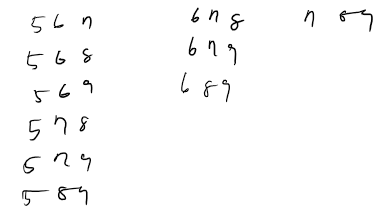 5 6 7 6 7 8 7 8 9
5 6 8 6 7 9
5 6 9 6 8 9
5 7 8
5 7 9
5 8 9